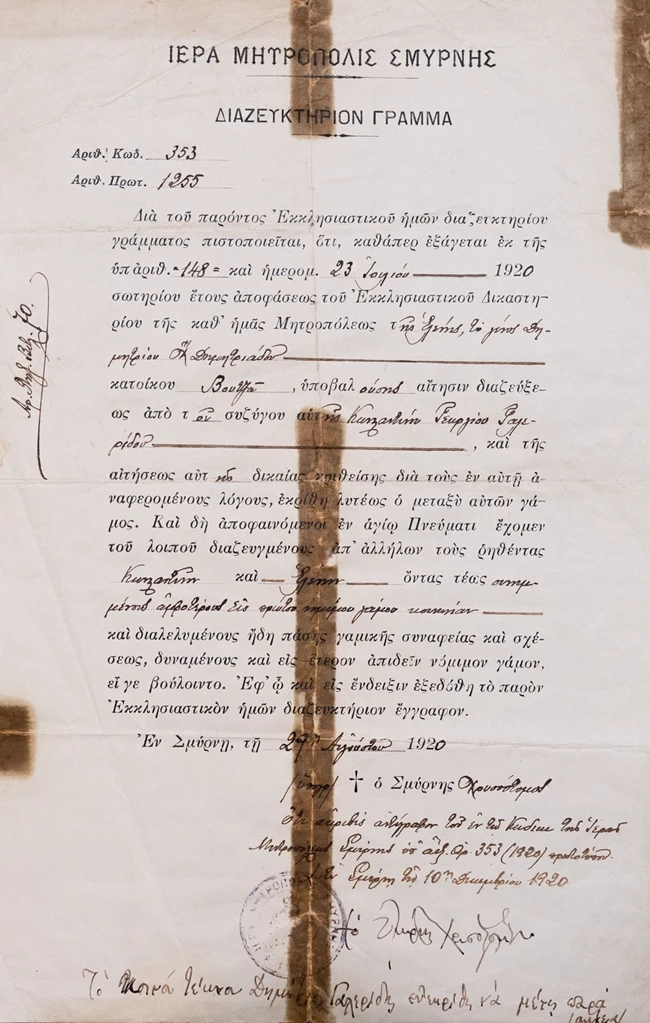 ΙΕΡΑ ΜΗΤΡΟΠΟΛΙΣ ΣΜΥΡΝΗΣ
ΔΙΑΖΕΥΚΤΗΡΙΟΝ ΓΡΑΜΜΑ
Ἀριθ. Κωδ. 353
Ἀριθ. Πρωτ. 1255
Διὰ τοῦ παρόντος Ἐκκλησιαστικοῦ ἡμῶν διαζευκτηρίου
γράμματος πιστοποιεῖται, ὅτι, καθάπερ ἐξάγεται ἐκ τῆς
ὑπ' ἀριθ. =148= καὶ ἡμερομ. 23 Ἰουλίου 1920
σωτηρίου ἔτους ἀποφάσεως τοῦ Ἐκκλησιαστικοῦ Δικαστη-
ρίου τῆς καθ' ἡμᾶς Μητροπόλεως τῆς Ἑλένης, τὸ γένος Δη-
μητρίου Δημητριάδου
κατοίκου Βουτζᾶ, ὑποβαλούσης αἴτησιν διαζεύξε-
ως ἀπὸ τοῦ συζύγου αὐτῆς Κωνσταντίνου Γεωργίου Γαλε-
ρίδου, καὶ τῆς
αἰτήσεως αὐτῆς δικαίας κριθείσης διὰ τοὺς ἐν αὐτῇ ἀ-
ναφερομένους λόγους, ἐκρίθη λυτέως ὁ μεταξὺ αὐτῶν γά-
μος. Καὶ δὴ ἀποφαινόμενοι ἐν ἁγίῳ Πνεύματι ἔχομεν
τοῦ λοιποῦ διαζευγμένους ἀπ' ἀλλήλων τοὺς ῥηθέντας
Κωνσταντῖνον καὶ Ἑλένην ὄντας τέως συνημ-
μένους ἀμφοτέρους εἰς πρώτου νομίμου γάμου κοινωνίαν
καὶ διαλελυμένους ἤδη πάσης γαμικῆς συναφείας καὶ σχέ-
σεως, δυναμένους καὶ εἰς ἕτερον ἀπιδεῖν νόμιμον γάμον,
εἴ γε βούλοιντο. Ἐφ' ᾧ καὶ εἰς ἔνδειξιν ἐξεδόθη τὸ παρὸν
Ἐκκλησιαστικὸν ἡμῶν διαζευκτήριον ἔγγραφον.
Ἐν Σμύρνῃ, τῇ 27ῃ Αὐγούστου 1920
† ὁ Σμύρνης Χρυσόστομος
Ὅτι ἀκριβὲς ἀντίγραφον τοῦ ἐν τῷ Κώδικι τῆς Ἱερᾶς
Μητροπόλεως Σμύρνης ὑπ' ἀριθ. 353 (1920) πρωτοτύπου.
Ἐν Σμύρνῃ τῇ 10ῃ Δεκεμβρίου 1920